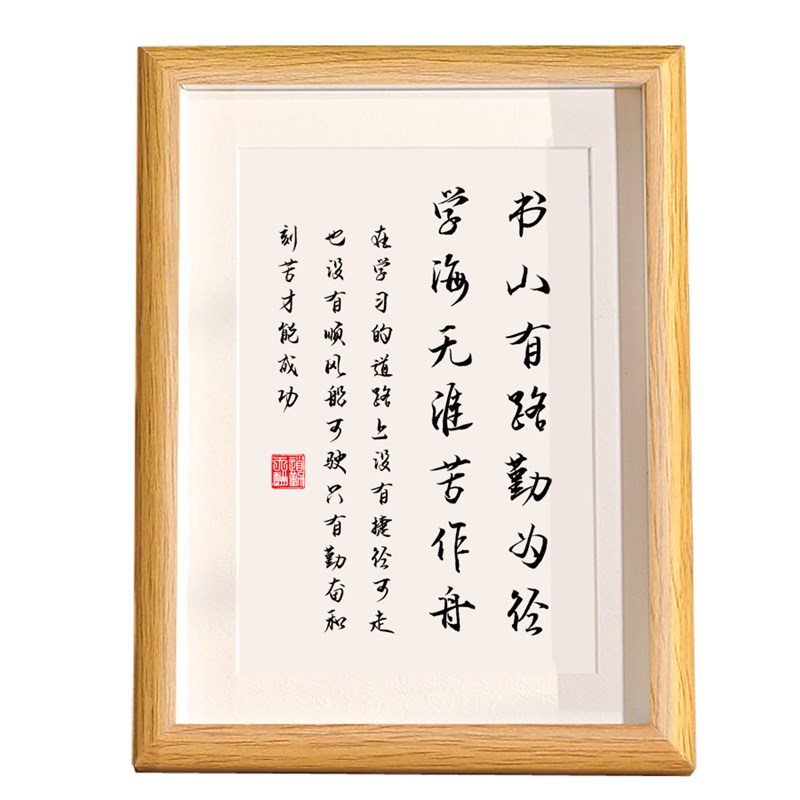 书山有路勤为径
学海无涯苦作舟
在学习的道路上没有捷径可走
也没有顺风船可驶只有勤奋和
刻苦才能成功